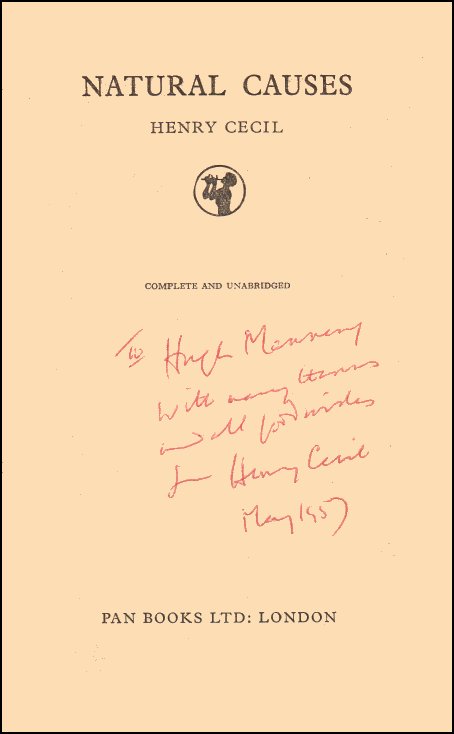 NATURAL CAUSES
HENRY CECIL
COMPLETE AND UNABRIDGED
To Hugh
With many thanks
and all good wishes
from Henry Cecil
May 1957
PAN BOOKS LTD: LONDON